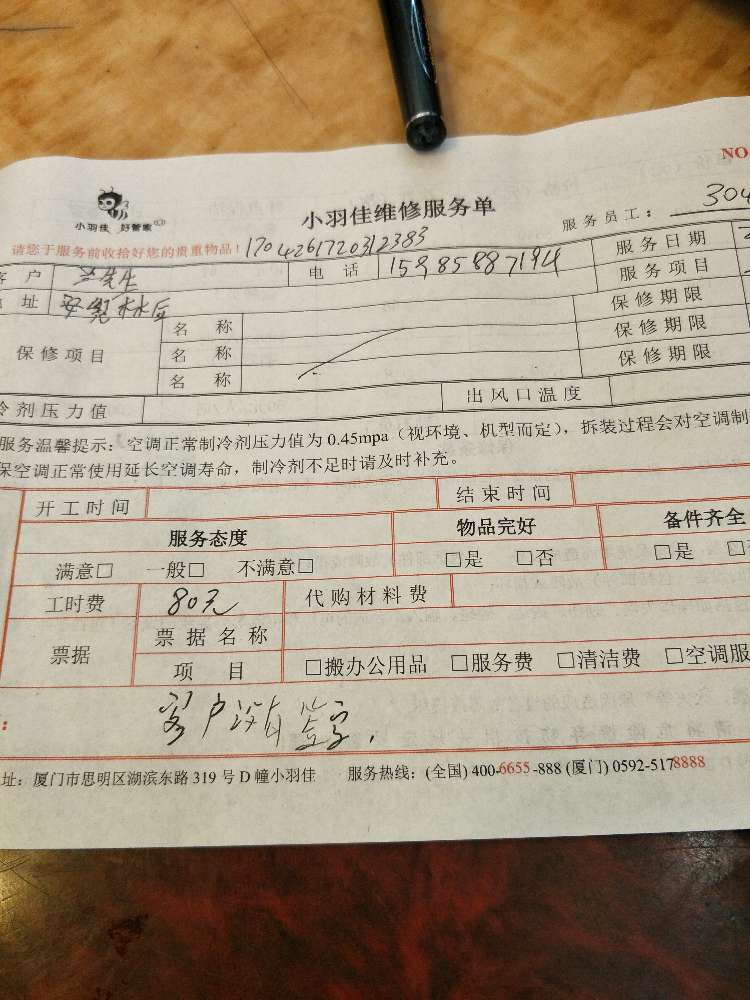 NO
小羽佳 好管家
小羽佳维修服务单
服务员工: 304
请您于服务前收拾好您的贵重物品! 1704261720312383
客 户 兰先生 电 话 15985887194 服务日期
地 址 水库 服务项目
保修项目 名 称 保修期限
名 称 保修期限
名 称 保修期限
冷剂压力值 出风口温度
服务温馨提示: 空调正常制冷剂压力值为 0.45mpa (视环境、机型而定), 拆装过程会对空调制
保空调正常使用延长空调寿命, 制冷剂不足时请及时补充。
开工时间 结束时间
服务态度 物品完好 备件齐全
满意□ 一般□ 不满意□ □是 □否 □是 □
工时费 80元 代购材料费
票据 票据名称
项 目 □搬办公用品 □服务费 □清洁费 □空调服
客户没有签字.
址: 厦门市思明区湖滨东路 319 号 D 幢小羽佳 服务热线: (全国) 400-6655-888 (厦门) 0592-5178888